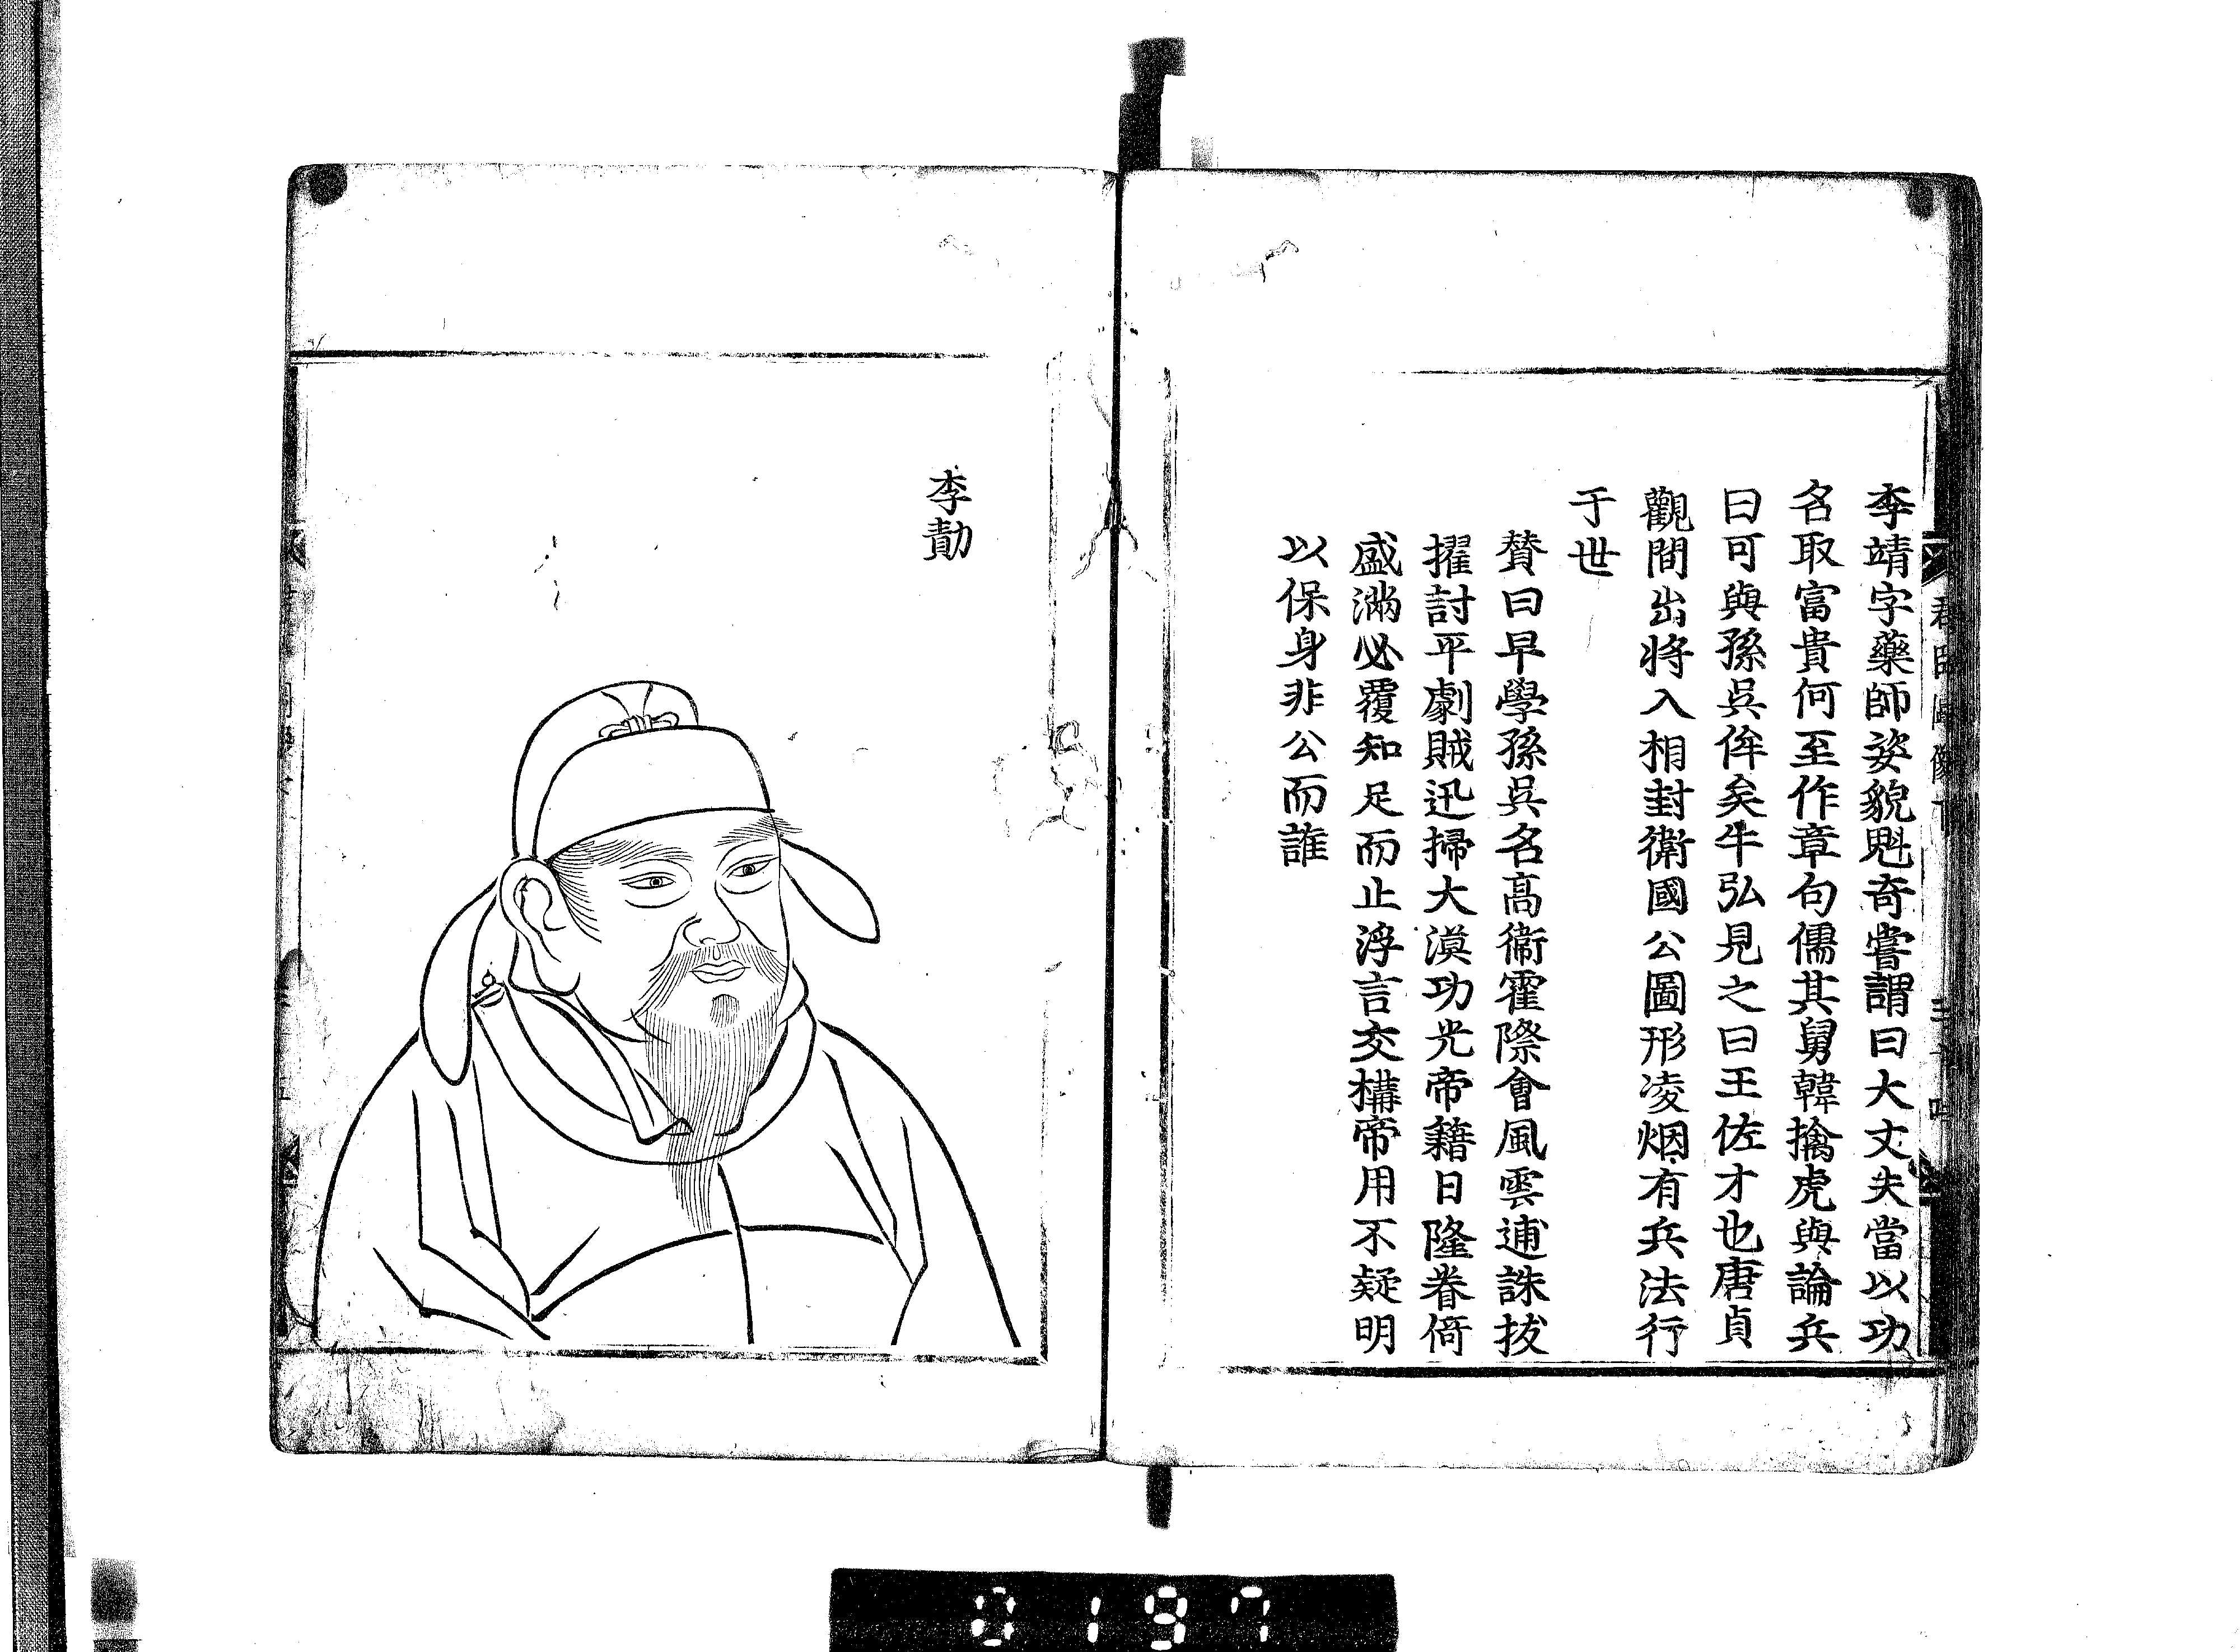 李靖字藥師姿貌魁奇嘗謂曰大丈夫當以功
名取富貴何至作章句儒其舅韓擒虎與論兵
曰可與孫吳侔矣牛弘見之曰王佐才也唐貞
觀間出將入相封衛國公圖形凌烟有兵法行
于世
賛曰早學孫吳名高衛霍際會風雲逋誅拔
擢討平劇賊迅掃大漠功光帝籍日隆眷倚
盛滿必覆知足而止浮言交構帝用不疑明
以保身非公而誰
李勣
0197